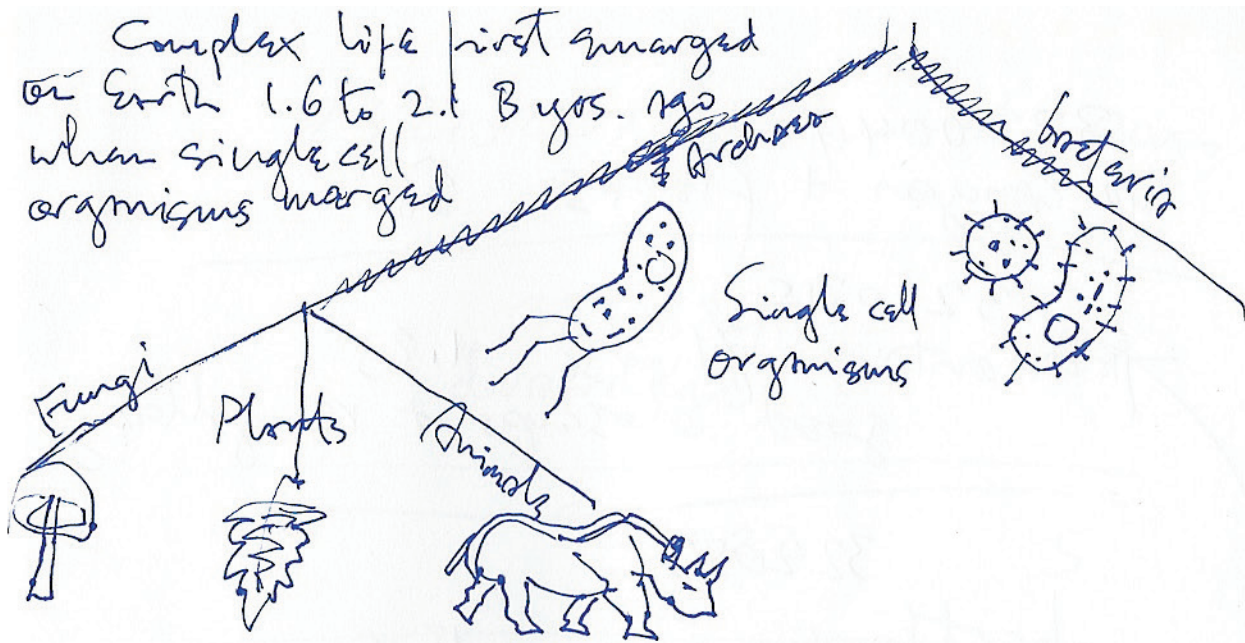 Complex life first emarged
on Earth 1.6 to 2.1 B yrs. ago
when single cell
orgmisms marged
Archaea
bacteria
Single cell
orgmisms
Fungi
Plants
Animals